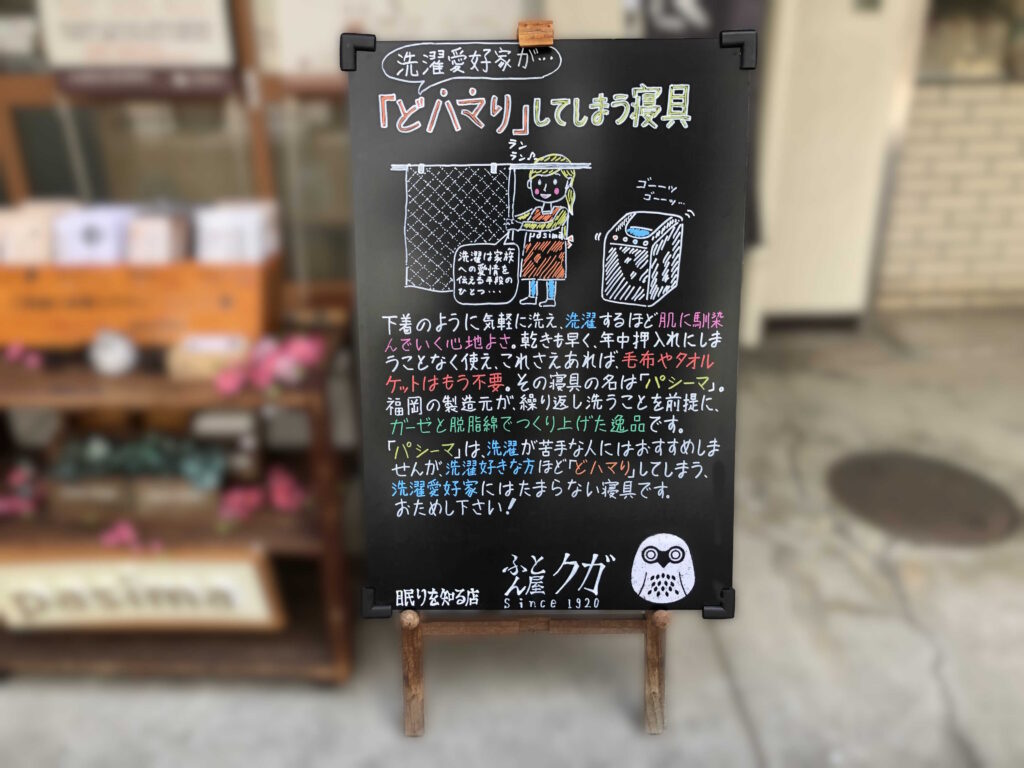 洗濯愛好家が…
「どハマり」してしまう寝具
ラン
ラン♪
pasima
洗濯は家族
への愛情を
伝える手段の
ひとつ・・・
ゴーーッ
ゴーーッ…
下着のように気軽に洗え、洗濯するほど肌に馴染
んでいく心地よさ。乾きも早く、年中押入れにしま
うことなく使え、これさえあれば、毛布やタオル
ケットはもう不要。その寝具の名は「パシーマ」。
福岡の製造元が、繰り返し洗うことを前提に、
ガーゼと脱脂綿でつくり上げた逸品です。
「パシーマ」は、洗濯が苦手な人にはおすすめしま
せんが、洗濯好きな方ほど「どハマり」してしまう、
洗濯愛好家にはたまらない寝具です。
おためし下さい！
眠りを知る店
ふとん屋クガ
Since 1920
pasima